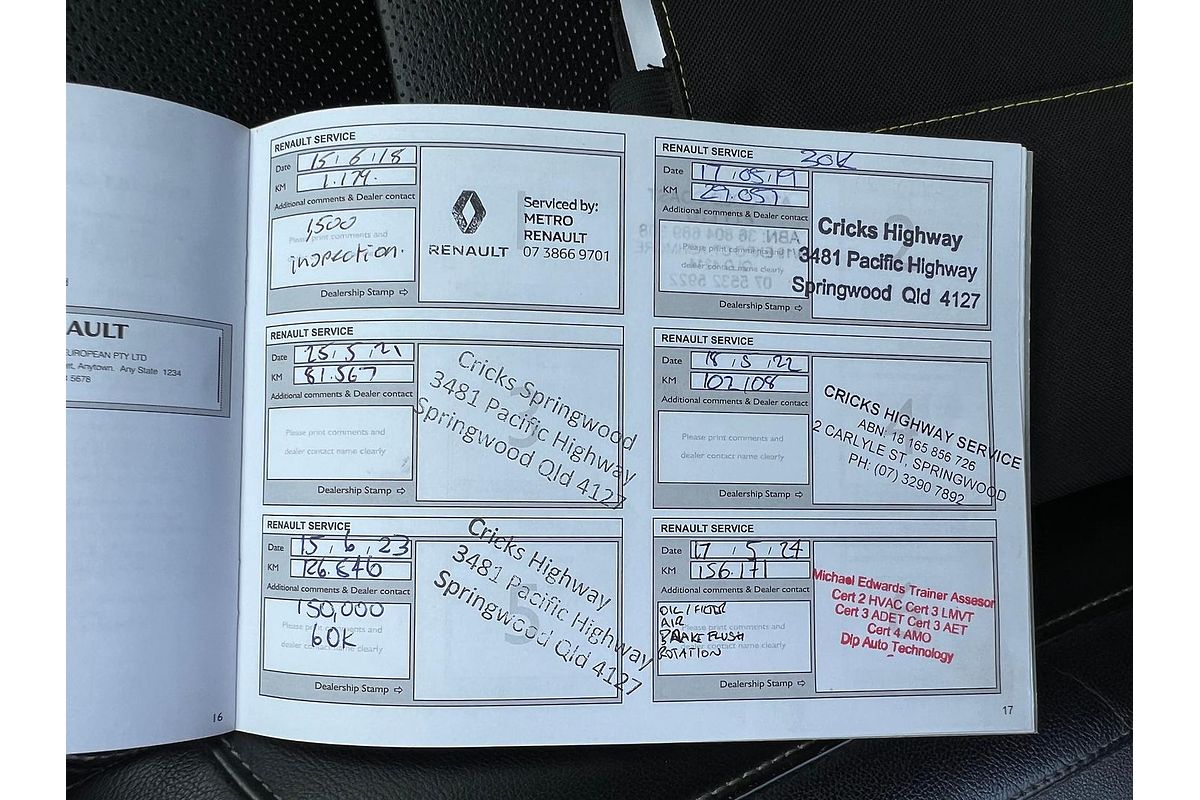 AULT
EUROPEAN PTY LTD
et, Anytown. Any State 1234
5678
16
RENAULT SERVICE
Date 15, 6, 18
KM 1.179.
Additional comments & Dealer contact
Please print comments and
1500
inspection.
Dealership Stamp ⇨
RENAULT
Serviced by:
METRO
RENAULT
07 3866 9701
RENAULT SERVICE
30K
Date 17, 05, 19
KM 29.051
Additional comments & Dealer contact
Please print comments and
dealer contact name clearly
Dealership Stamp ⇨
2
Cricks Highway
3481 Pacific Highway
Springwood Qld 4127
RENAULT SERVICE
Date 25, 5, 21
KM 81.567
Additional comments & Dealer contact
Please print comments and
dealer contact name clearly
Dealership Stamp ⇨
3
Cricks Springwood
3481 Pacific Highway
Springwood Qld 4127
RENAULT SERVICE
Date 18, 5, 22
KM 102108
Additional comments & Dealer contact
Please print comments and
dealer contact name clearly
Dealership Stamp ⇨
4
CRICKS HIGHWAY SERVICE
ABN: 18 165 856 726
2 CARLYLE ST, SPRINGWOOD
PH: (07) 3290 7892
RENAULT SERVICE
Date 15, 6, 23
KM 126.646
Additional comments & Dealer contact
150,000
60K
dealer contact name clearly
Dealership Stamp ⇨
5
Cricks Highway
3481 Pacific Highway
Springwood Qld 4127
RENAULT SERVICE
Date 17, 5, 24
KM 156.171
Additional comments & Dealer contact
OIL/FILTER
AIR
BRAKE FLUSH
ROTATION
Please print comments and
dealer contact name clearly
Dealership Stamp ⇨
Michael Edwards Trainer Assesor
Cert 2 HVAC Cert 3 LMVT
Cert 3 ADET Cert 3 AET
Cert 4 AMO
Dip Auto Technology
17